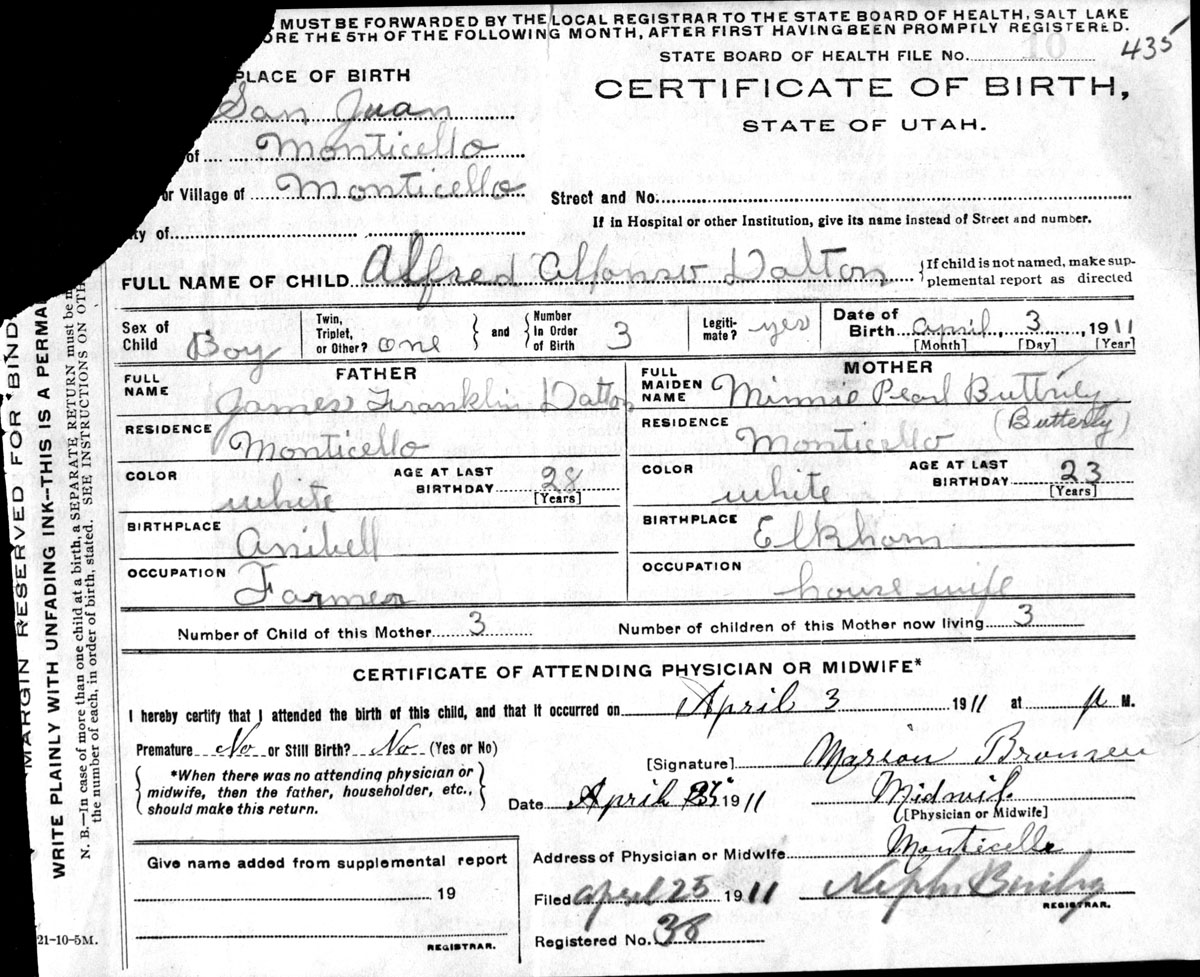 MUST BE FORWARDED BY THE LOCAL REGISTRAR TO THE STATE BOARD OF HEALTH, SALT LAKE
ORE THE 5TH OF THE FOLLOWING MONTH, AFTER FIRST HAVING BEEN PROMPTLY REGISTERED.
STATE BOARD OF HEALTH FILE No. 10 435
PLACE OF BIRTH
CERTIFICATE OF BIRTH,
STATE OF UTAH.
San Juan
of Monticello
or Village of Monticello
Street and No.
If in Hospital or other Institution, give its name instead of Street and number.
ity of
FULL NAME OF CHILD Alfred Alfonso Dalton {If child is not named, make sup-
plemental report as directed
Sex of Child Boy
Twin, Triplet, or Other? one } and { Number in Order of Birth 3
Legiti-mate? yes
Date of Birth April, 3, 1911
[Month] [Day] [Year]
FATHER
FULL NAME James Franklin Dalton
RESIDENCE Monticello
COLOR white AGE AT LAST BIRTHDAY 28
[Years]
BIRTHPLACE Anibell
OCCUPATION Farmer
MOTHER
FULL MAIDEN NAME Minnie Pearl Buttrily
(Butterly)
RESIDENCE Monticello
COLOR white AGE AT LAST BIRTHDAY 23
[Years]
BIRTHPLACE Elkhorn
OCCUPATION house wife
Number of Child of this Mother 3 Number of children of this Mother now living 3
CERTIFICATE OF ATTENDING PHYSICIAN OR MIDWIFE*
I hereby certify that I attended the birth of this child, and that it occurred on April 3 1911 at p M.
Premature No or Still Birth? No (Yes or No)
[Signature] Marion Bronson
{ *When there was no attending physician or
midwife, then the father, householder, etc.,
should make this return. }
Date April 1911 Midwif.
[Physician or Midwife]
Give name added from supplemental report
19
REGISTRAR.
Address of Physician or Midwife Monticello
Filed April 25 1911 Nephi
REGISTRAR.
Registered No. 38
21-10-5M.
MARGIN RESERVED FOR BIND
WRITE PLAINLY WITH UNFADING INK—THIS IS A PERMA
N. B.—In case of more than one child at a birth, a SEPARATE RETURN must be m
the number of each, in order of birth, stated. SEE INSTRUCTIONS ON OTH